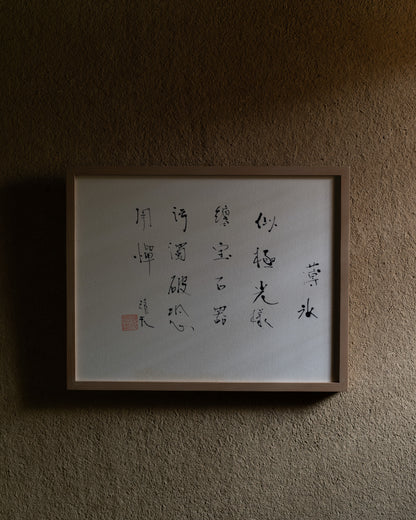 薄氷
似極光様
纏宝石器
汚濁破恐
用憚